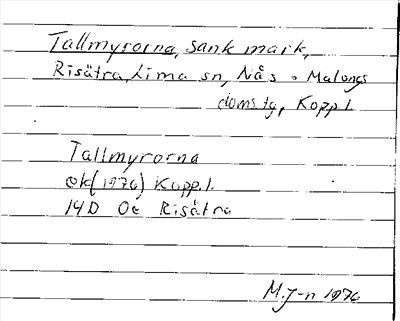 Tallmyrorna, sank mark,
Risätra, Lima sn, Nås o Malungs
doms.tg, Kopp.l.
Tallmyrorna
ek (1976) Kopp.l.
14D 0e Risätra
M.J-n 1976